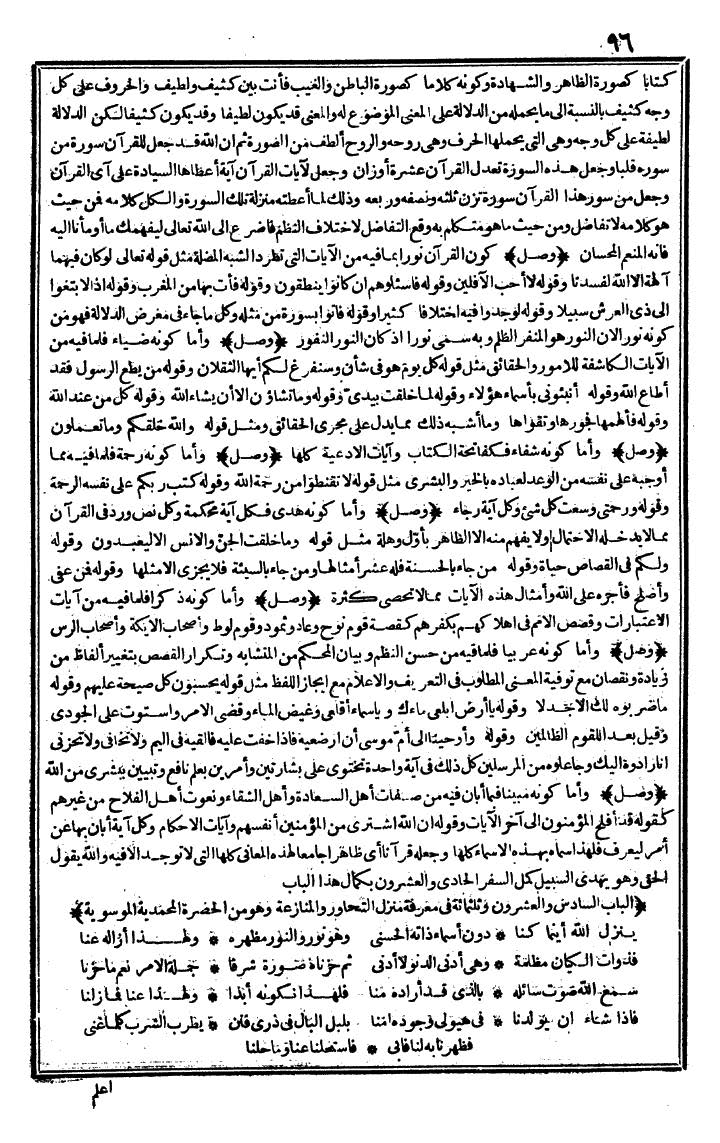 ٩٦
كتابا كصورة الظاهر والشهادة وكونه كلاما كصورة الباطن والغيب فأنت بين كثيف ولطيف والحروف على كل
وجه كثيف بالنسبة الى ما يحمله من الدلالة على المعنى الموضوع له والمعنى قد يكون لطيفا وقد يكون كثيفا لكن الدلالة
لطيفة على كل وجه وهى التى يحملها الحرف وهى روحه والروح ألطف من الصورة ثم ان الله قد جعل للقرآن سورة من
سوره قلبا وجعل هذه السورة تعدل القرآن عشرة أوزان وجعل لآيات القرآن آية أعطاها السيادة على آى القرآن
وجعل من سور هذا القرآن سورة تزن ثلثه ونصفه وربعه وذلك لما أعطته منزلة تلك السورة والكل كلامه فن حيث
هو كلامه لا تفاضل ومن حيث ما هو متكلم به وقع التفاضل لاختلاف النظم فاضرع الى الله تعالى ليفهمك ما أومأنا اليه
فانه المنعم المحسان ﴿وصل﴾ كون القرآن نورا بما فيه من الآيات التى تطرد الشبه المضلة مثل قوله تعالى لو كان فيهما
آلهة الا الله لفسدتا وقوله لا أحب الآفلين وقوله فاسئلوهم ان كانوا ينطقون وقوله فأت بها من المغرب وقوله اذا لابتغوا
الى ذى العرش سبيلا وقوله لوجدوا فيه اختلافا كثيرا وقوله فأتوا بسورة من مثله وكل ما جاء فى معرض الدلالة فهو من
كونه نورا لان النور هو المنفر الظلم وبه سمى نورا اذ كان النور النفور ﴿وصل﴾ وأما كونه ضياء فلما فيه من
الآيات الكاشفة للامور والحقائق مثل قوله كل يوم هو فى شأن وسنفرغ لكم أيها الثقلان وقوله من يطع الرسول فقد
أطاع الله وقوله أنبئونى بأسماء هؤلاء وقوله لما خلقت بيدى وقوله وما تشاؤن الا أن يشاء الله وقوله كل من عند الله
وقوله فألهمها فجورها وتقواها وما أشبه ذلك مما يدل على مجرى الحقائق ومثل قوله والله خلقكم وما تعملون
﴿وصل﴾ وأما كونه شفاء فكفاتحة الكتاب وآيات الادعية كلها ﴿وصل﴾ وأما كونه رحمة فلما فيه مما
أوجبه على نفسه من الوعد لعباده بالخير والبشرى مثل قوله لا تقنطوا من رحمة الله وقوله كتب ربكم على نفسه الرحمة
وقوله ورحمتى وسعت كل شئ وكل آية رجاء ﴿وصل﴾ وأما كونه هدى فكل آية محكمة وكل نص ورد فى القرآن
مما لا يدخله الاحتمال ولا يفهم منه الا الظاهر بأول وهلة مثل قوله وما خلقت الجن والانس الا ليعبدون وقوله
ولكم فى القصاص حياة وقوله من جاء بالحسنة فله عشر أمثالها ومن جاء بالسيئة فلا يجزى الا مثلها وقوله فن عفى
وأصلح فأجره على الله وأمثال هذه الآيات مما لا تحصى كثرة ﴿وصل﴾ وأما كونه ذكرا فلما فيه من آيات
الاعتبارات وقصص الامم فى اهلاكهم بكفرهم كقصة قوم نوح وعاد وثمود وقوم لوط وأصحاب الايكة وأصحاب الرس
﴿وصل﴾ وأما كونه عربيا فلما فيه من حسن النظم وبيان المحكم من المتشابه وتكرار القصص بتغيير ألفاظ من
زيادة ونقصان مع توفية المعنى المطلوب فى التعريف والاعلام مع ايجاز اللفظ مثل قوله يحسبون كل صيحة عليهم وقوله
ما ضربوه لك الا جدلا وقوله يا أرض ابلعى ماءك ويا سماء أقلعى وغيض الماء وقضى الامر واستوت على الجودى
وقيل بعدا للقوم الظالمين وقوله وأوحينا الى أم موسى أن ارضعيه فاذا خفت عليه فالقيه فى اليم ولا تخافى ولا تحزنى
انا رادوه اليك وجاعلوه من المرسلين كل ذلك فى آية واحدة تحتوى على بشارتين وأمرين بعلم نافع وتبيين ببشرى من الله
﴿وصل﴾ وأما كونه مبينا فبما أبان فيه من صفات أهل السعادة وأهل الشقاء ونعوت أهل الفلاح من غيرهم
كقوله قد أفلح المؤمنون الى آخر الآيات وقوله ان الله اشترى من المؤمنين أنفسهم وآيات الاحكام وكل آية أبان بها عن
أمر ليعرف فلهذا سماه بهذه الاسماء كلها وجعله قرآنا أى ظاهرا جامعا لهذه المعانى كلها التى لا توجد الا فيه والله يقول
الحق وهو يهدى السبيل كمل السفر الحادى والعشرون بكمال هذا الباب
﴿الباب السادس والعشرون وثلثمائة فى معرفة منزل التحاور والمنازعة وهو من الحضرة المحمدية الموسوية﴾
ينزل الله أينما كنا * دون أسماء ذاته الحسنى وهو نور والنور مظهره * ولهذا أزاله عنا
فذوات الكيان مظلمة * وهى أدنى الدنو لا أدنى ثم حزناه صورة شرفا * جملة الامر نعم ما حزنا
سمع الله صوت سائله * بالذى قد أراده منا فلهذا نكونه أبدا * ولهذا عنا فما زلنا
فاذا شاء ان يولدنا * فى هيولى وجوده امنا بلبل البال فى ذرى فنن * يطرب الشرب كلما غنى
فظهرنا به لنا فابى * فاستحلنا عنا وما حلنا
اعلم